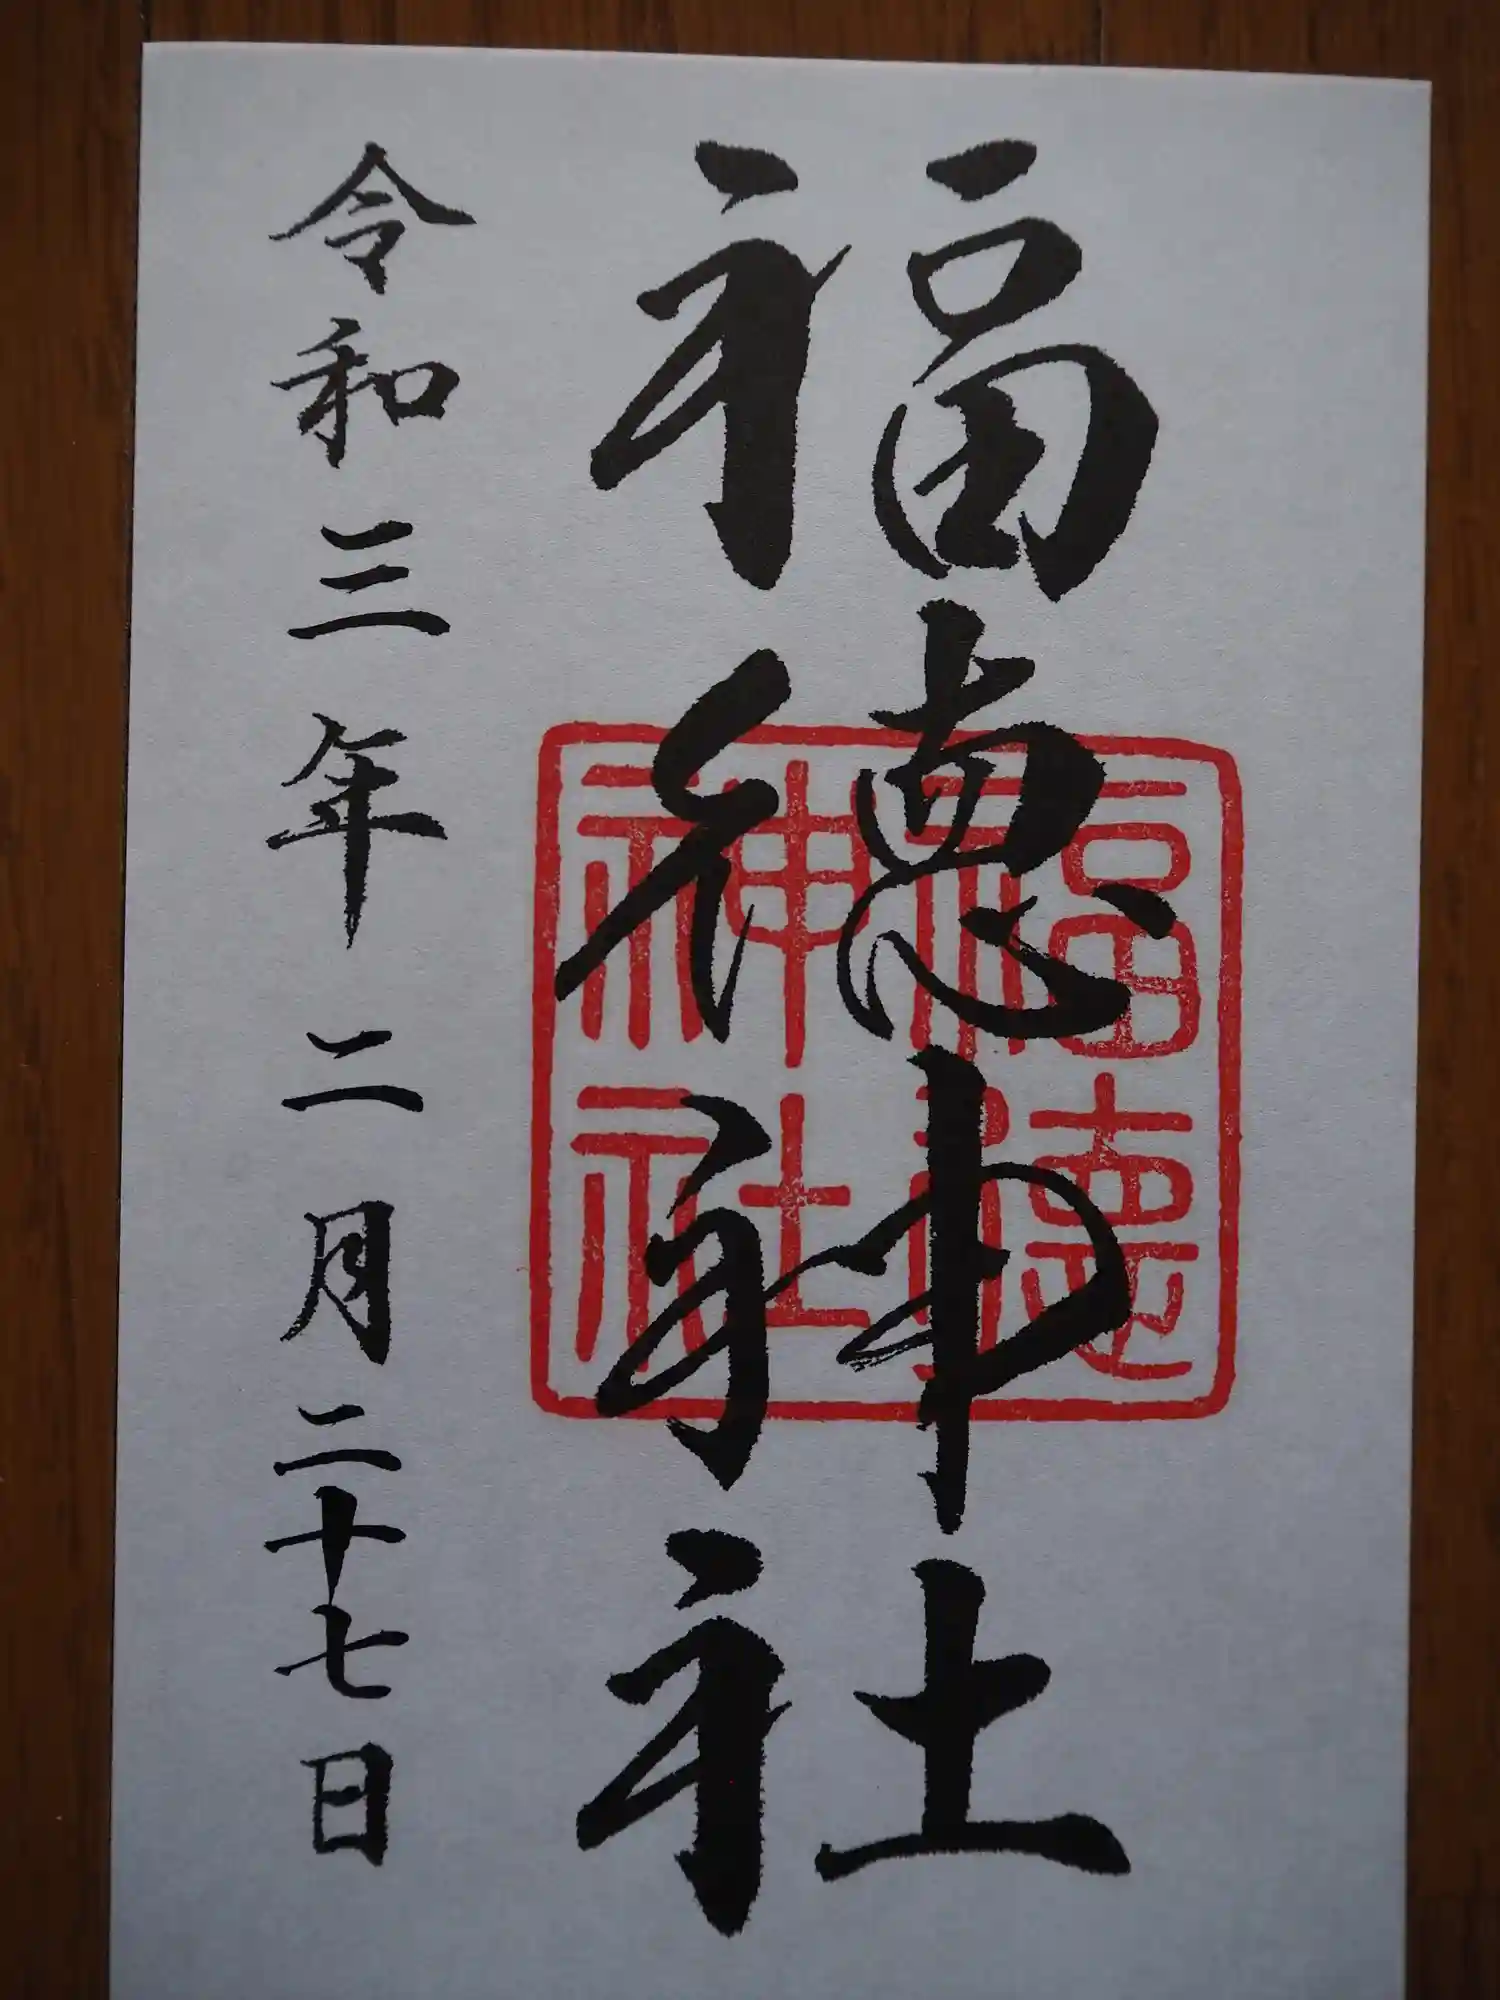 福徳神社
福徳
神社
令和三年二月二十七日